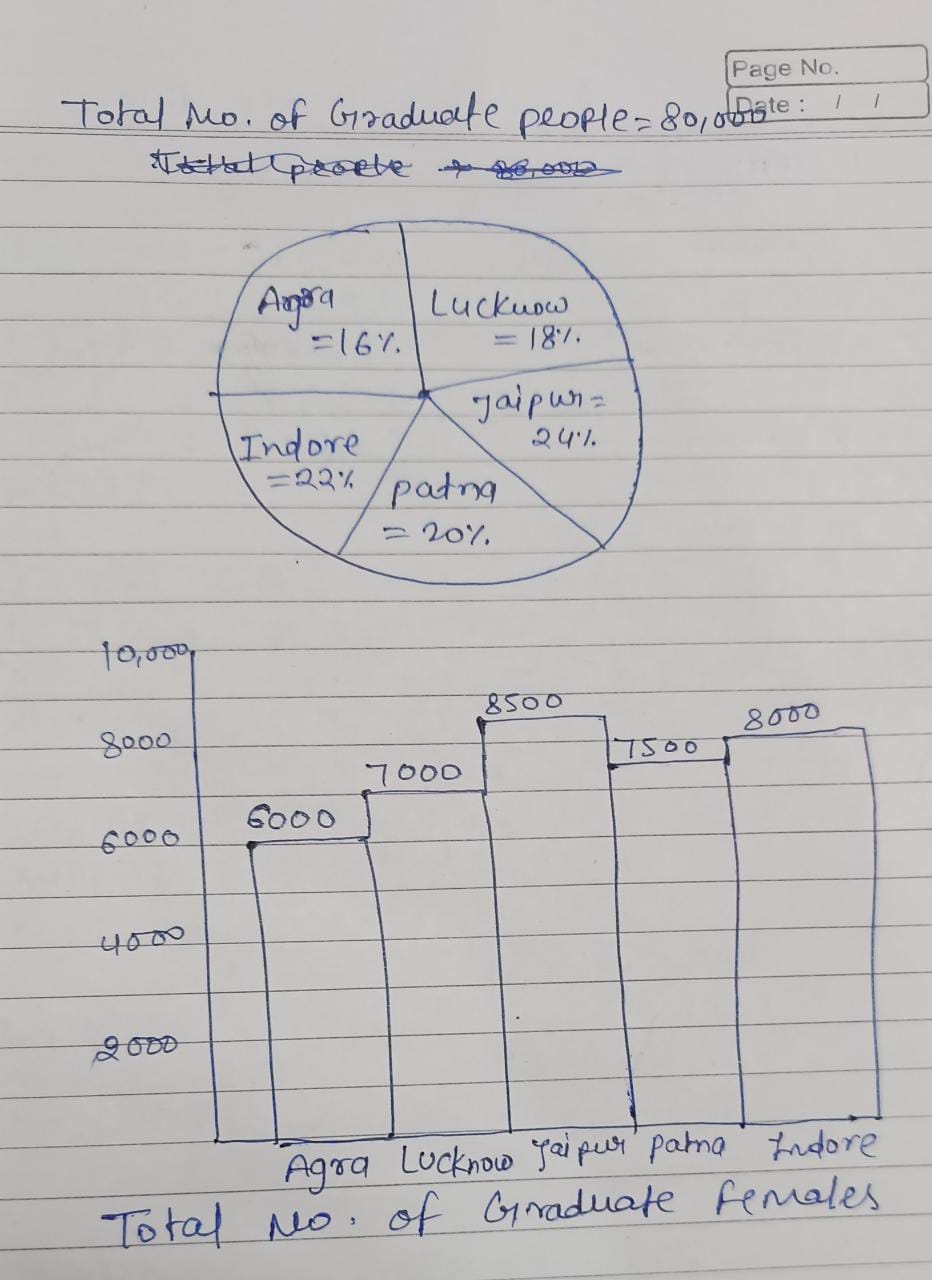 Page No.
Date : / /
Total No. of Graduate people = 80,000
Total people → 80,000
Agra
= 16%.
Lucknow
= 18%.
Jaipur =
24%.
Indore
= 22%
patna
= 20%.
10,000
8000
6000
4000
2000
6000
7000
8500
7500
8000
Agra Lucknow Jaipur patna Indore
Total No. of Graduate females